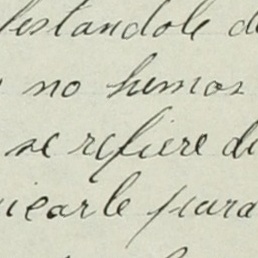 estandole d
no hemos
se refiere di
icarle para